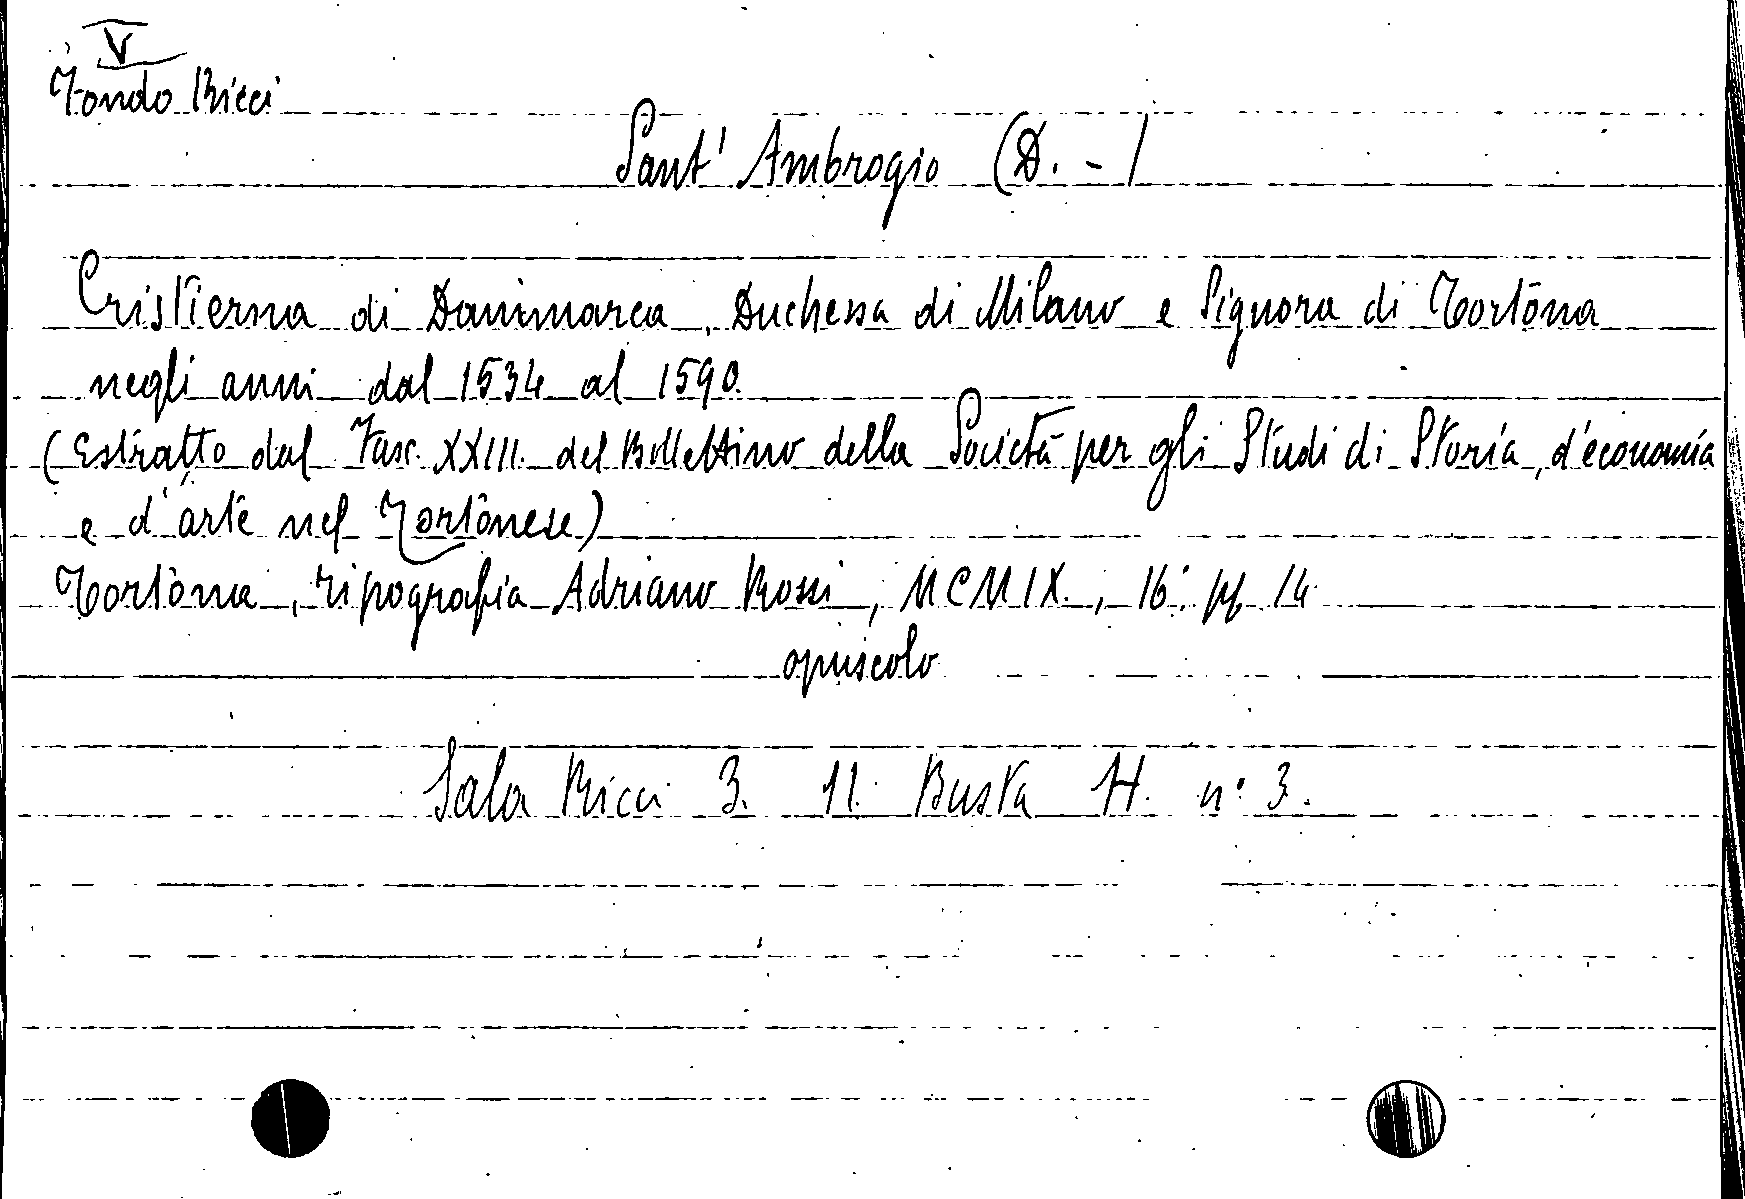 V
Fondo Ricci
Sant' Ambrogio (D. - )
Cristierna di Danimarca, Duchessa di Milano e Signora di Tortona
negli anni dal 1534 al 1590.
(Estratto dal Fasc. XXIII. del Bollettino della Società per gli Studi di Storia, d'economia
e d'arte nel Tortonese)
Tortona, tipografia Adriano Rossi, MCMIX., 16° pp. 14
opuscolo
Sala Ricci 3. 11. Busta H. n° 3.